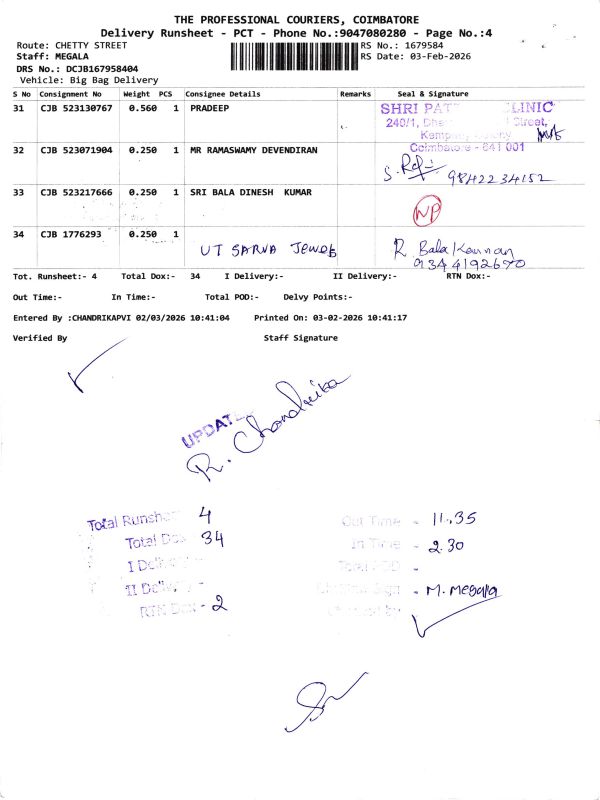 THE PROFESSIONAL COURIERS, COIMBATORE
Delivery Runsheet - PCT - Phone No.:9047080280 - Page No.:4
Route: CHETTY STREET RS No.: 1679584
Staff: MEGALA RS Date: 03-Feb-2026
DRS No.: DCJB167958404
Vehicle: Big Bag Delivery
S No Consignment No Weight PCS Consignee Details Remarks Seal & Signature
31 CJB 523130767 0.560 1 PRADEEP SHRI CLINIC
240/1, Street,
Coimbatore - 641 001
32 CJB 523071904 0.250 1 MR RAMASWAMY DEVENDIRAN
9842234152
33 CJB 523217666 0.250 1 SRI BALA DINESH KUMAR NP
34 CJB 1776293 0.250 1
UT SARVA JEWOE R Bala Kannan
9344192690
Tot. Runsheet:- 4 Total Dox:- 34 I Delivery:- II Delivery:- RTN Dox:-
Out Time:- In Time:- Total POD:- Delvy Points:-
Entered By :CHANDRIKAPVI 02/03/2026 10:41:04 Printed On: 03-02-2026 10:41:17
Verified By Staff Signature
UPDATE
R. Chandrika
Total Runsheet 4
Total Dox 34
I Delivery -
II Delivery -
RTN Dox - 2
Out Time - 11.35
In Time - 2.30
Total POD -
Sign - M. Megala